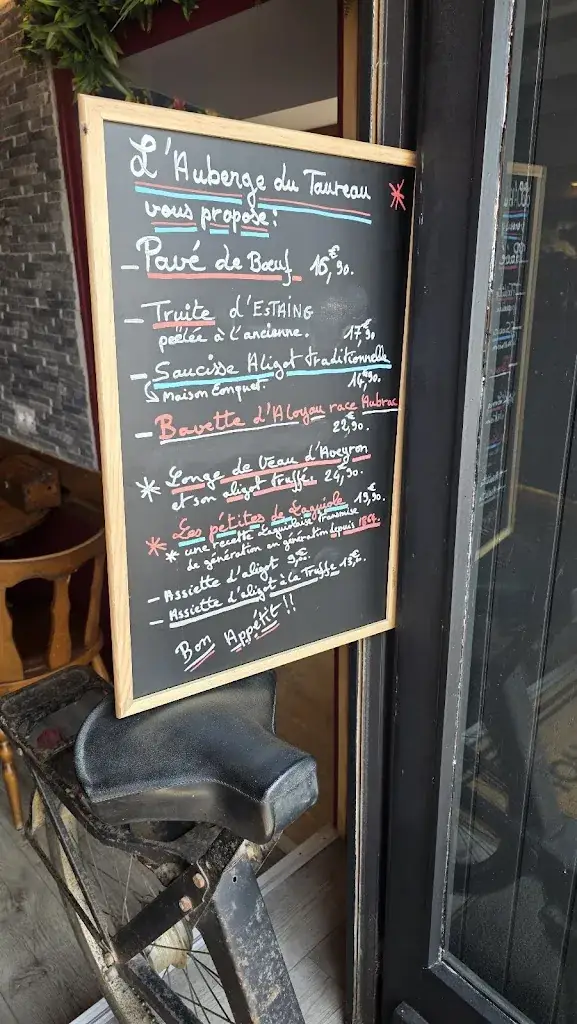 L'Auberge du Taureau
vous propose:
- Pavé de Bœuf 16,€90.
- Truite d'ESTAING
pêlée à l'ancienne. 17,€90
- Saucisse Aligot traditionnelle
Maison Conquet. 14,€90.
- Bavette d'Aloyau race Aubrac
22,€90.
* Longe de Veau d'Aveyron
et son aligot truffé. 24,€90.
* Les pétites de Laguiole 19,€90.
* une recette Laguiolaise transmise
de génération en génération depuis 1864.
- Assiette d'aligot 9,€.
- Assiette d'aligot à la Truffe 13,€.
Bon Appétit!!